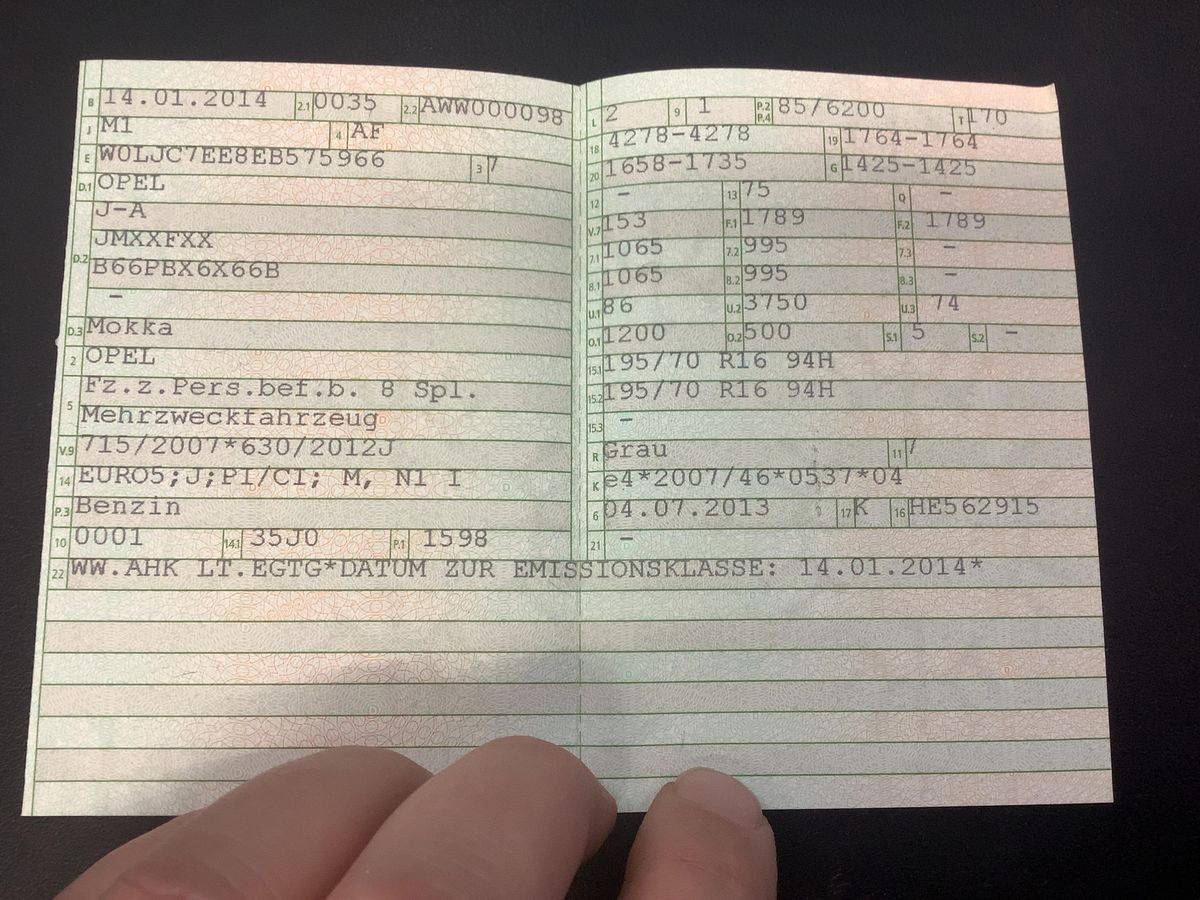 B 14.01.2014 2.1 0035 2.2 AWW000098
J M1 4 AF
E W0LJC7EE8EB575966 3 7
D.1 OPEL
D.2 J-A
JMXXFXX
B66PBX6X66B
-
D.3 Mokka
2 OPEL
5 Fz.z.Pers.bef.b. 8 Spl.
Mehrzweckfahrzeug
V.9 715/2007*630/2012J
14 EURO5;J;PI/CI; M, N1 I
P.3 Benzin
10 0001 14.1 35J0 P.1 1598
L 2 9 1 P.2 P.4 85/6200 T 170
18 4278-4278 19 1764-1764
20 1658-1735 G 1425-1425
12 - 13 75 Q -
V.7 153 F.1 1789 F.2 1789
7.1 1065 7.2 995 7.3 -
8.1 1065 8.2 995 8.3 -
U.1 86 U.2 3750 U.3 74
O.1 1200 O.2 500 S.1 5 S.2 -
15.1 195/70 R16 94H
15.2 195/70 R16 94H
15.3 -
R Grau 11 7
K e4*2007/46*0537*04
6 04.07.2013 17 K 16 HE562915
21 -
22 WW.AHK LT.EGTG*DATUM ZUR EMISSIONSKLASSE: 14.01.2014*